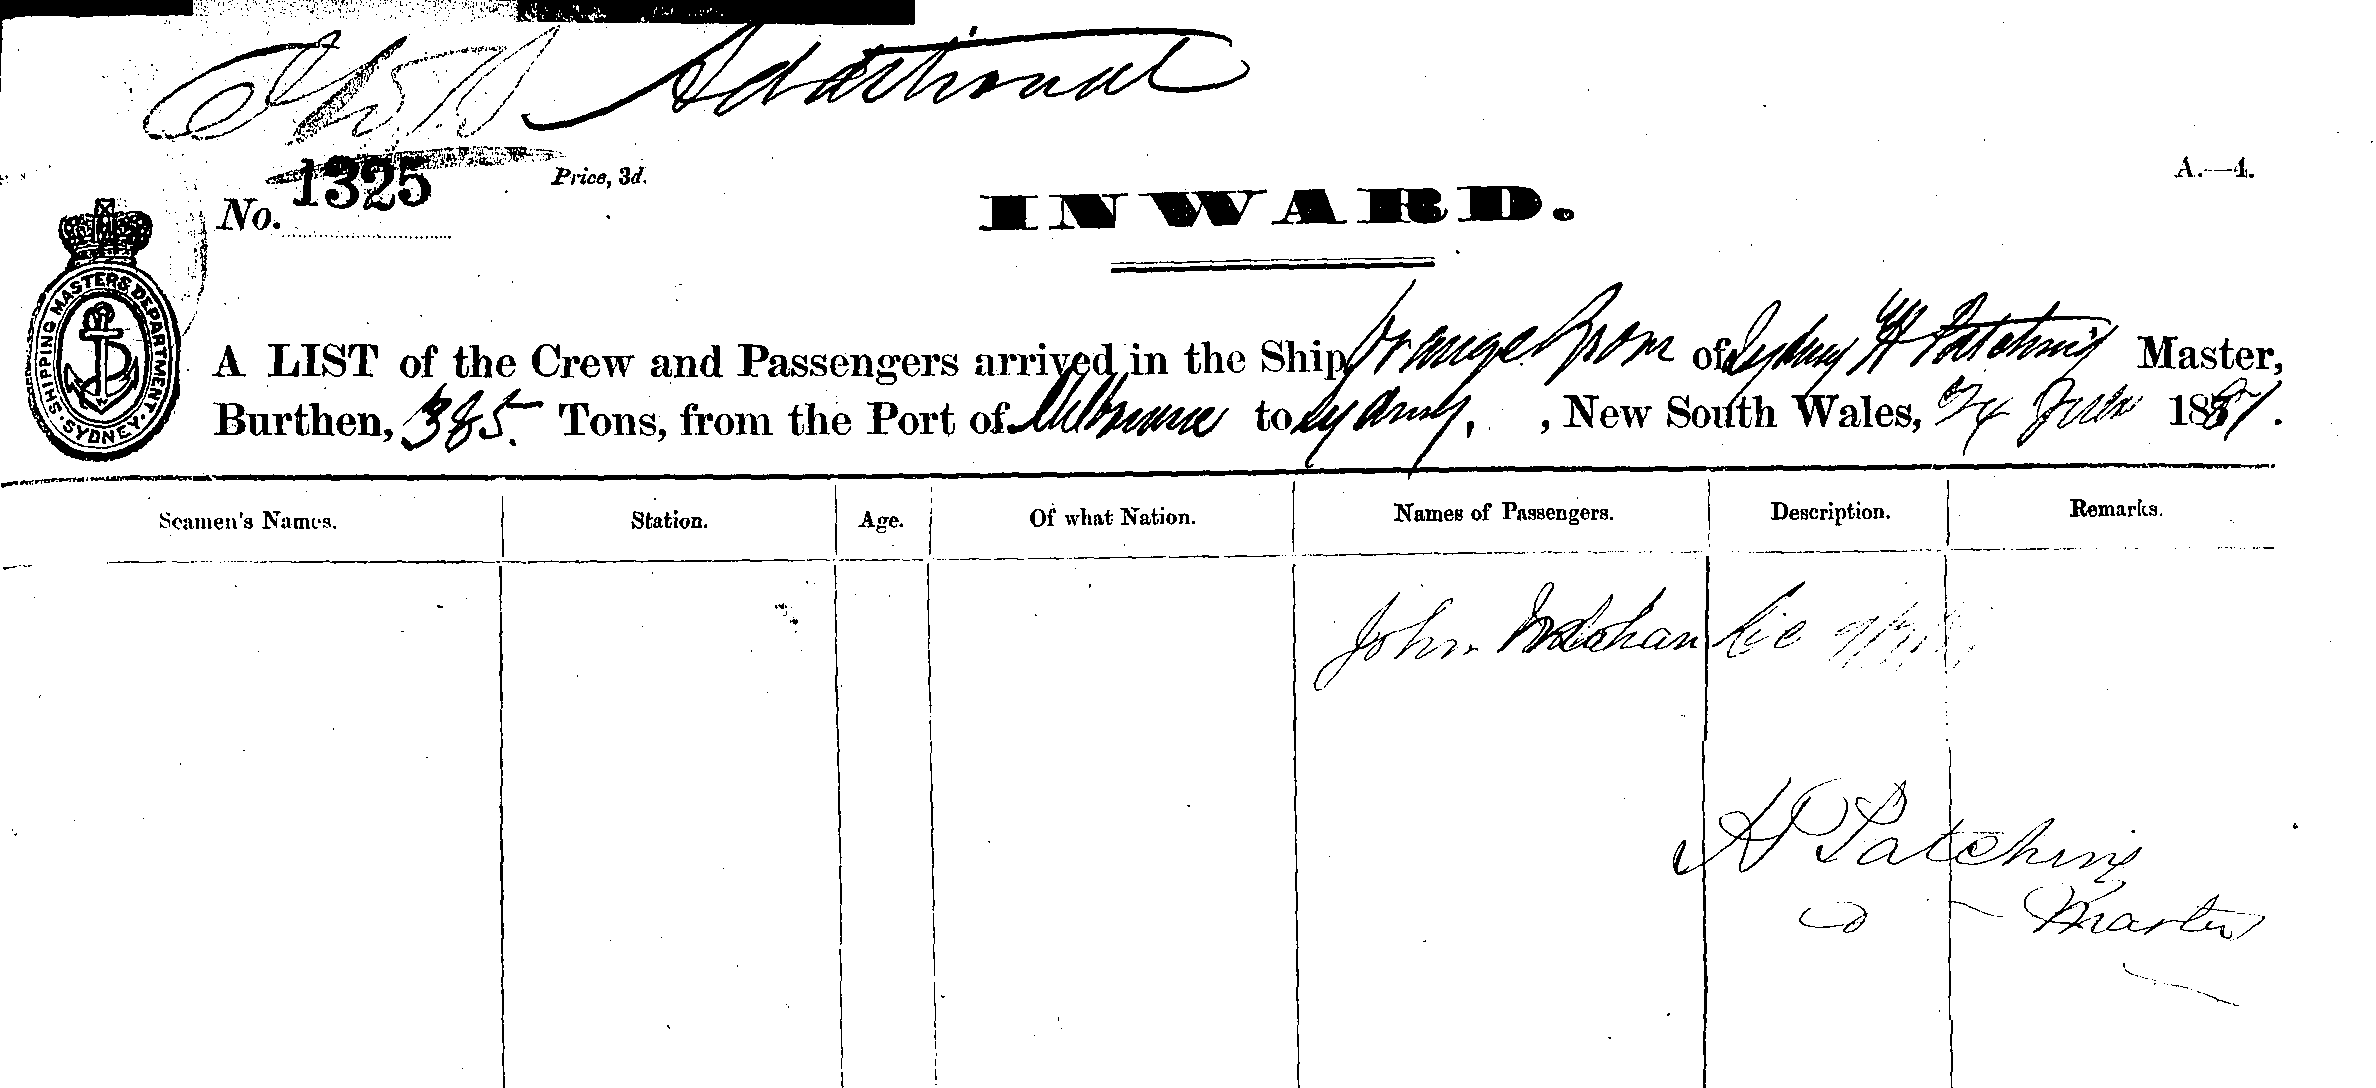 Additional
No. 1325 Price, 3d.
A.—4.
INWARD.
SHIPPING MASTERS DEPARTMENT. SYDNEY.
A LIST of the Crew and Passengers arrived in the Ship Orange Grove of Sydney H Patching Master,
Burthen, 385. Tons, from the Port of Melbourne to Sydney, , New South Wales, 24 June 1881.
Seamen's Names. Station. Age. Of what Nation. Names of Passengers. Description. Remarks.
John
H Patching
Master